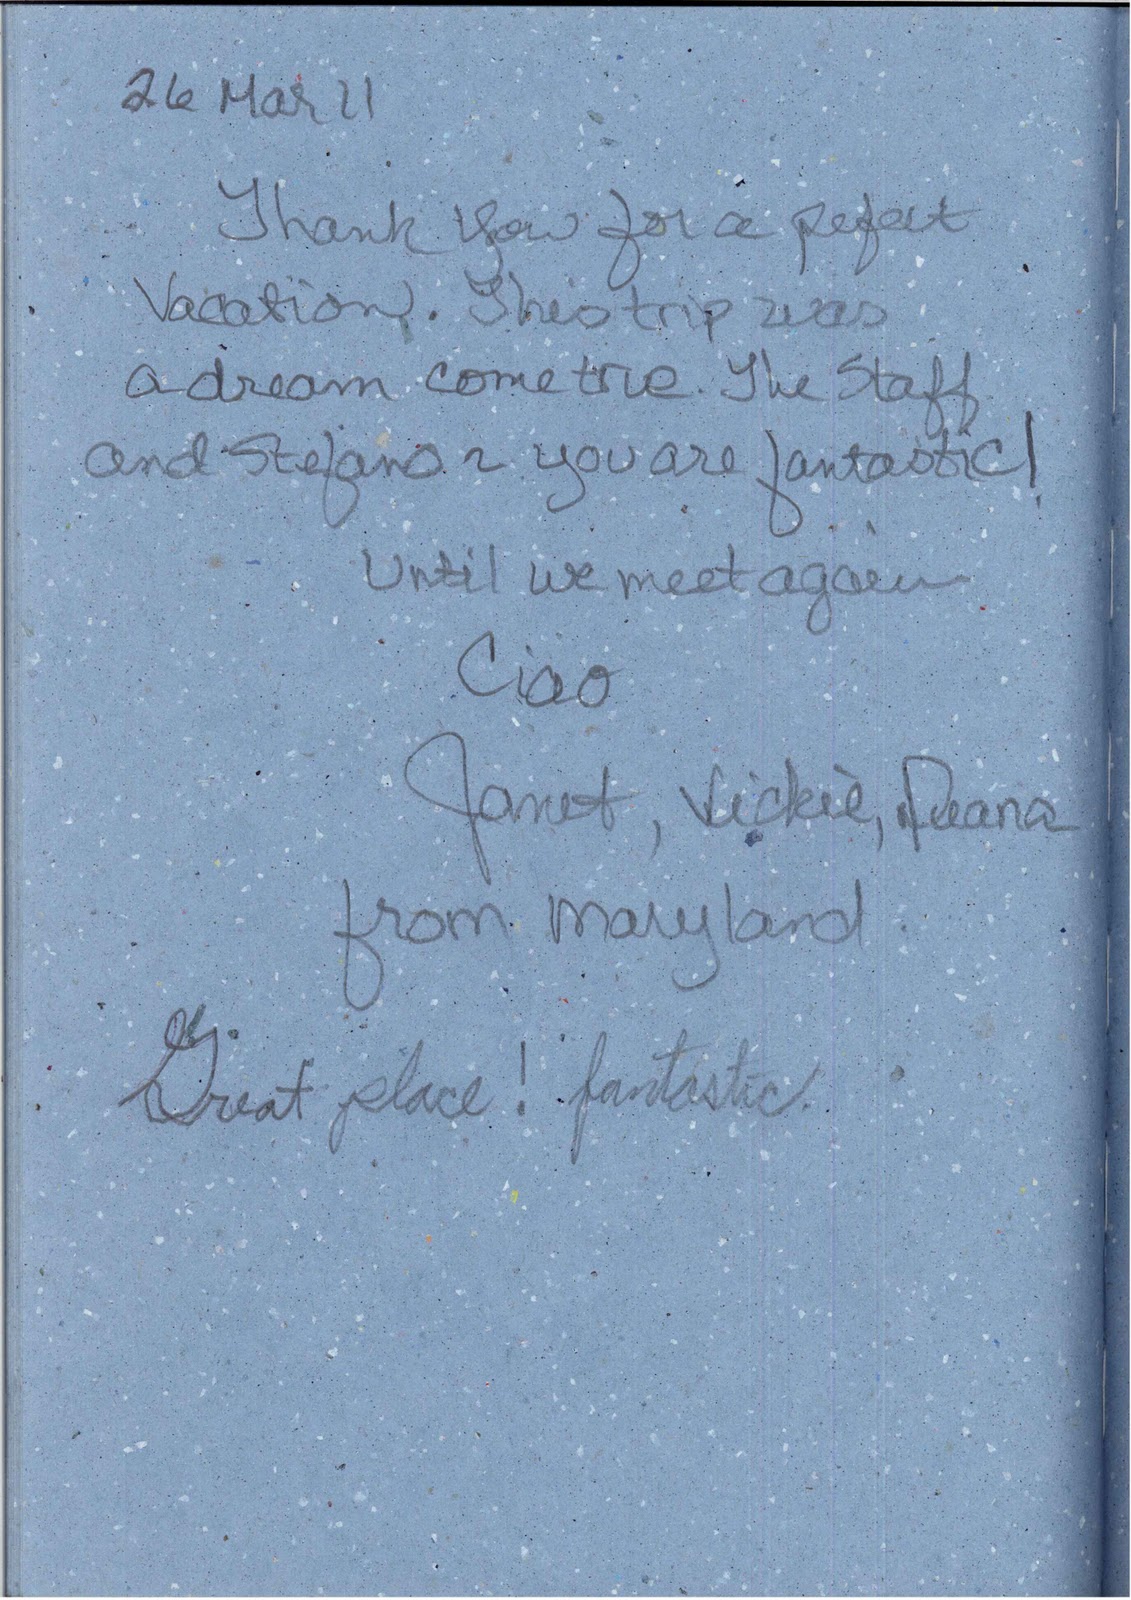 26 Mar 11
Thank you for a pefect
Vacation. This trip was
a dream come true. The Staff
and Stefano ~ you are fantastic!
Until we meet again
Ciao
Janet, Vickie, Deana
from Maryland
Great place! fantastic.